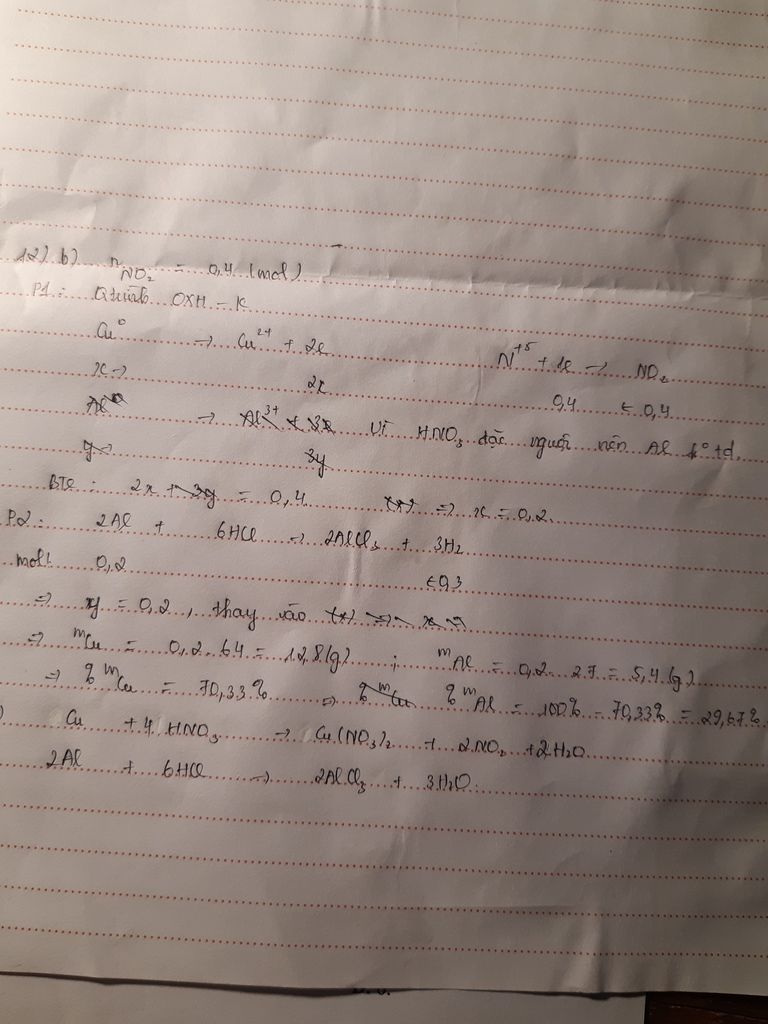 12) b) nNO₂ = 0,4 (mol)
P1: Qtrình OXH - K
Cu⁰ → Cu²⁺ + 2e N⁺⁵ + 1e → NO₂
x → 2x 0,4 ← 0,4
Al⁰ → Al³⁺ + 3e Vì HNO₃ đặc nguội nên Al k° td.
y → 3y
BTe: 2x + 3y = 0,4 (*) => x = 0,2.
P2: 2Al + 6HCl → 2AlCl₃ + 3H₂
mol: 0,2 ← 0,3
=> y = 0,2, thay vào (*) => x =
=> mCu = 0,2 . 64 = 12,8 (g) ; mAl = 0,2 . 27 = 5,4 (g)
=> % mCu = 70,33% => % mCu % mAl = 100% - 70,33% = 29,67%
) Cu + 4 HNO₃ → Cu(NO₃)₂ + 2NO₂ + 2H₂O
2Al + 6HCl → 2AlCl₃ + 3H₂O.